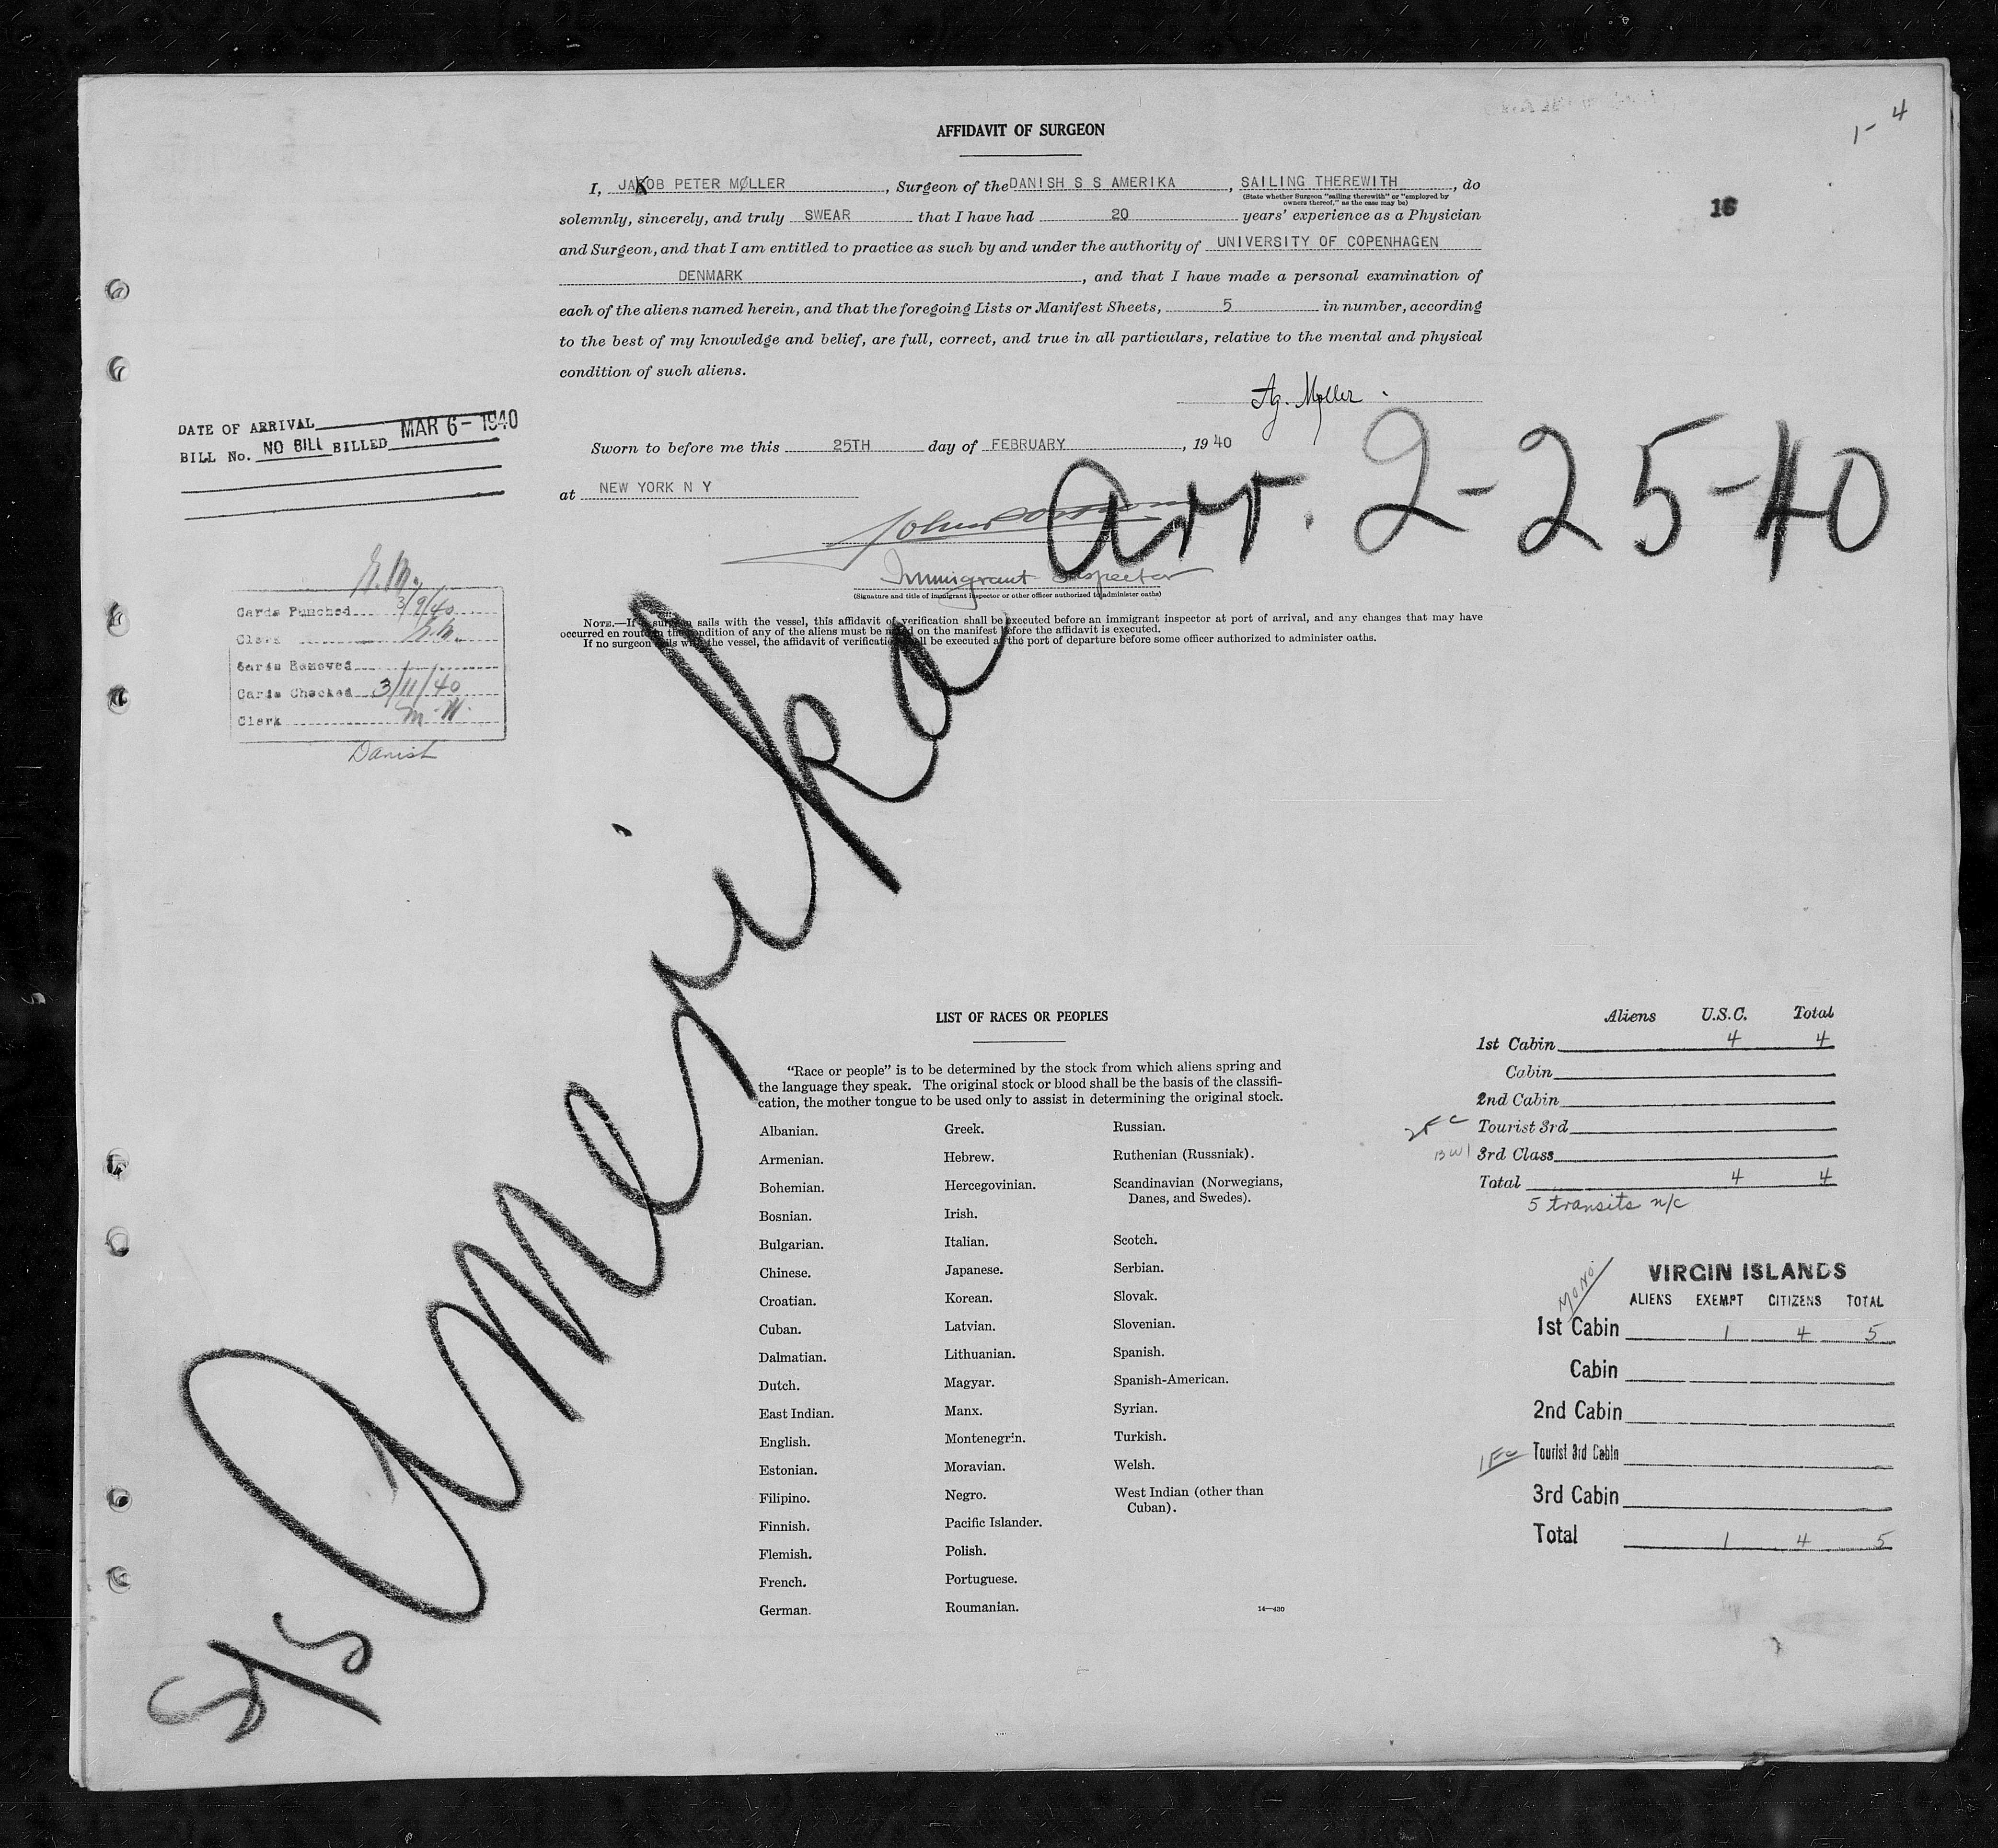 1- 4
AFFIDAVIT OF SURGEON
I, JAKOB PETER MØLLER, Surgeon of the DANISH S S AMERIKA, SAILING THEREWITH, do
(State whether Surgeon "sailing therewith" or "employed by
owners thereof," as the case may be)
16
solemnly, sincerely, and truly SWEAR that I have had 20 years' experience as a Physician
and Surgeon, and that I am entitled to practice as such by and under the authority of UNIVERSITY OF COPENHAGEN
DENMARK, and that I have made a personal examination of
each of the aliens named herein, and that the foregoing Lists or Manifest Sheets, 5 in number, according
to the best of my knowledge and belief, are full, correct, and true in all particulars, relative to the mental and physical
condition of such aliens.
Møller
DATE OF ARRIVAL
BILL No. NO BILL BILLED MAR 6- 1940
Sworn to before me this 25TH day of FEBRUARY, 19 40
at NEW YORK N Y
arr. 2-25-40
Immigrant Inspector
(Signature and title of immigrant inspector or other officer authorized to administer oaths)
NOTE.—If a surgeon sails with the vessel, this affidavit of verification shall be executed before an immigrant inspector at port of arrival, and any changes that may have
occurred en route in the condition of any of the aliens must be noted on the manifest before the affidavit is executed.
If no surgeon sails with the vessel, the affidavit of verification shall be executed at the port of departure before some officer authorized to administer oaths.
Cards Punched 3/9/40
Clerk
Cards Removed
Cards Checked 3/11/40
Clerk
Danish
S/S Amerika
LIST OF RACES OR PEOPLES
"Race or people" is to be determined by the stock from which aliens spring and
the language they speak. The original stock or blood shall be the basis of the classifi-
cation, the mother tongue to be used only to assist in determining the original stock.
Albanian.
Armenian.
Bohemian.
Bosnian.
Bulgarian.
Chinese.
Croatian.
Cuban.
Dalmatian.
Dutch.
East Indian.
English.
Estonian.
Filipino.
Finnish.
Flemish.
French.
German.
Greek.
Hebrew.
Hercegovinian.
Irish.
Italian.
Japanese.
Korean.
Latvian.
Lithuanian.
Magyar.
Manx.
Montenegrin.
Moravian.
Negro.
Pacific Islander.
Polish.
Portuguese.
Roumanian.
Russian.
Ruthenian (Russniak).
Scandinavian (Norwegians,
Danes, and Swedes).
Scotch.
Serbian.
Slovak.
Slovenian.
Spanish.
Spanish-American.
Syrian.
Turkish.
Welsh.
West Indian (other than
Cuban).
14—430
Aliens U.S.C. Total
1st Cabin 4 4
Cabin
2nd Cabin
Tourist 3rd
3rd Class
Total 4 4
5 transits n/c
VIRGIN ISLANDS
ALIENS EXEMPT CITIZENS TOTAL
1st Cabin 1 4 5
Cabin
2nd Cabin
Tourist 3rd Cabin
3rd Cabin
Total 1 4 5